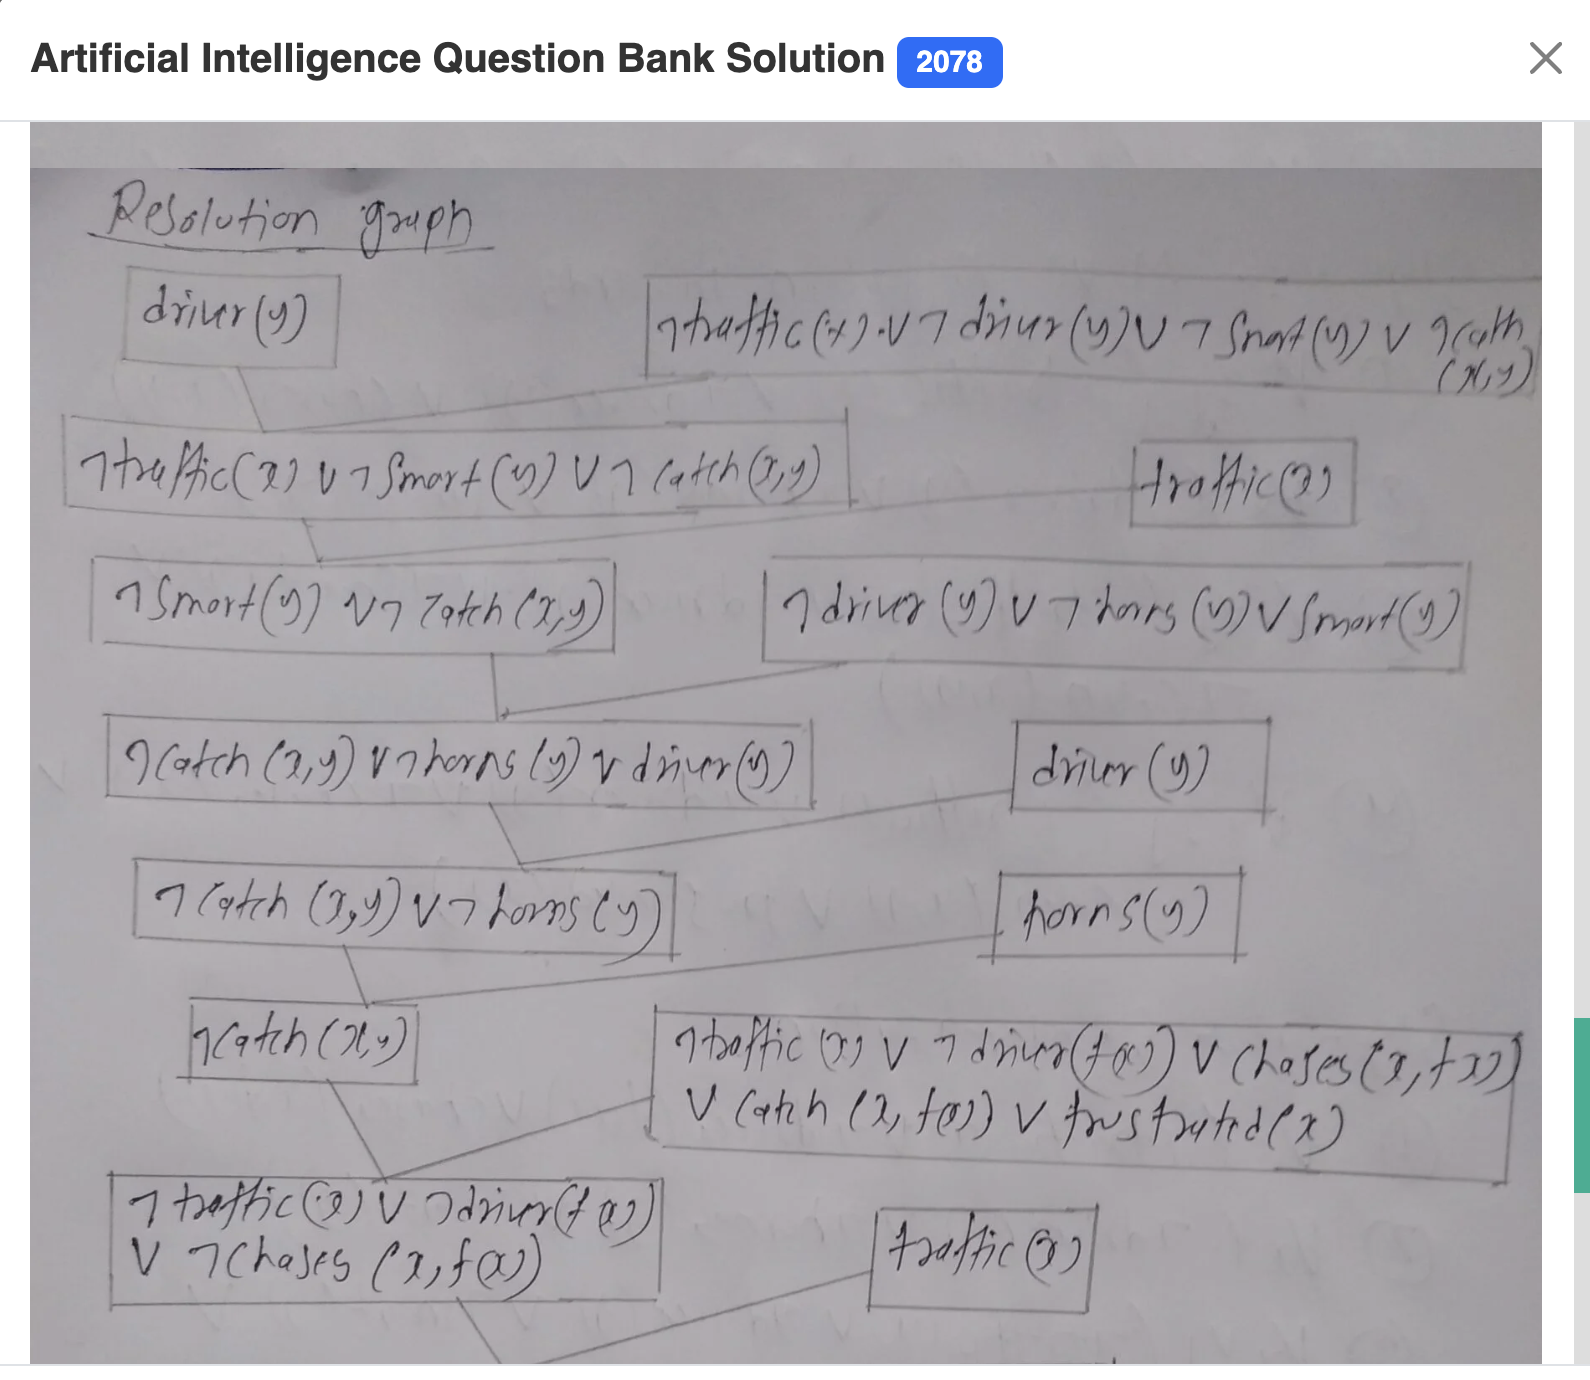 Artificial Intelligence Question Bank Solution 2078
Resolution graph
driver(y)
¬traffic(x) ∨ ¬driver(y) ∨ ¬Smart(y) ∨ ¬Cath
(x,y)
¬traffic(x) ∨ ¬Smart(y) ∨ ¬Catch(x,y)
traffic(x)
¬Smart(y) ∨ ¬Catch(x,y)
¬driver(y) ∨ ¬horns(y) ∨ Smart(y)
¬Catch(x,y) ∨ ¬horns(y) ∨ driver(y)
driver(y)
¬Catch(x,y) ∨ ¬horns(y)
horns(y)
¬Catch(x,y)
¬traffic(x) ∨ ¬driver(f(x)) ∨ Chases(x, f(x))
∨ Catch(x, f(x)) ∨ frustrated(x)
¬traffic(x) ∨ ¬driver(f(x))
∨ ¬Chases(x, f(x))
traffic(x)